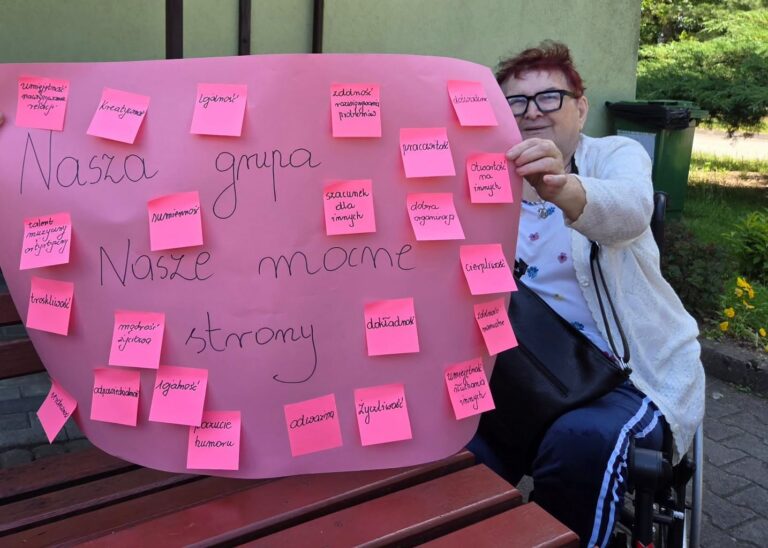 umiejętność
nawiązywania
relacji
kreatywność
lojalność
zdolność
rozwiązywania
problemów
doświadczenie
pracowitość
otwartość
na
innych
Nasza grupa
talent
muzyczny
artystyczny
sumienność
szacunek
dla
innych
dobra
organizacja
Nasze mocne
cierpliwość
troskliwość
mądrość
życiowa
strony
dokładność
zdolności
manualne
odpowiedzialność
lojalność
poczucie
humoru
odważna
życzliwość
umiejętność
słuchania
innych